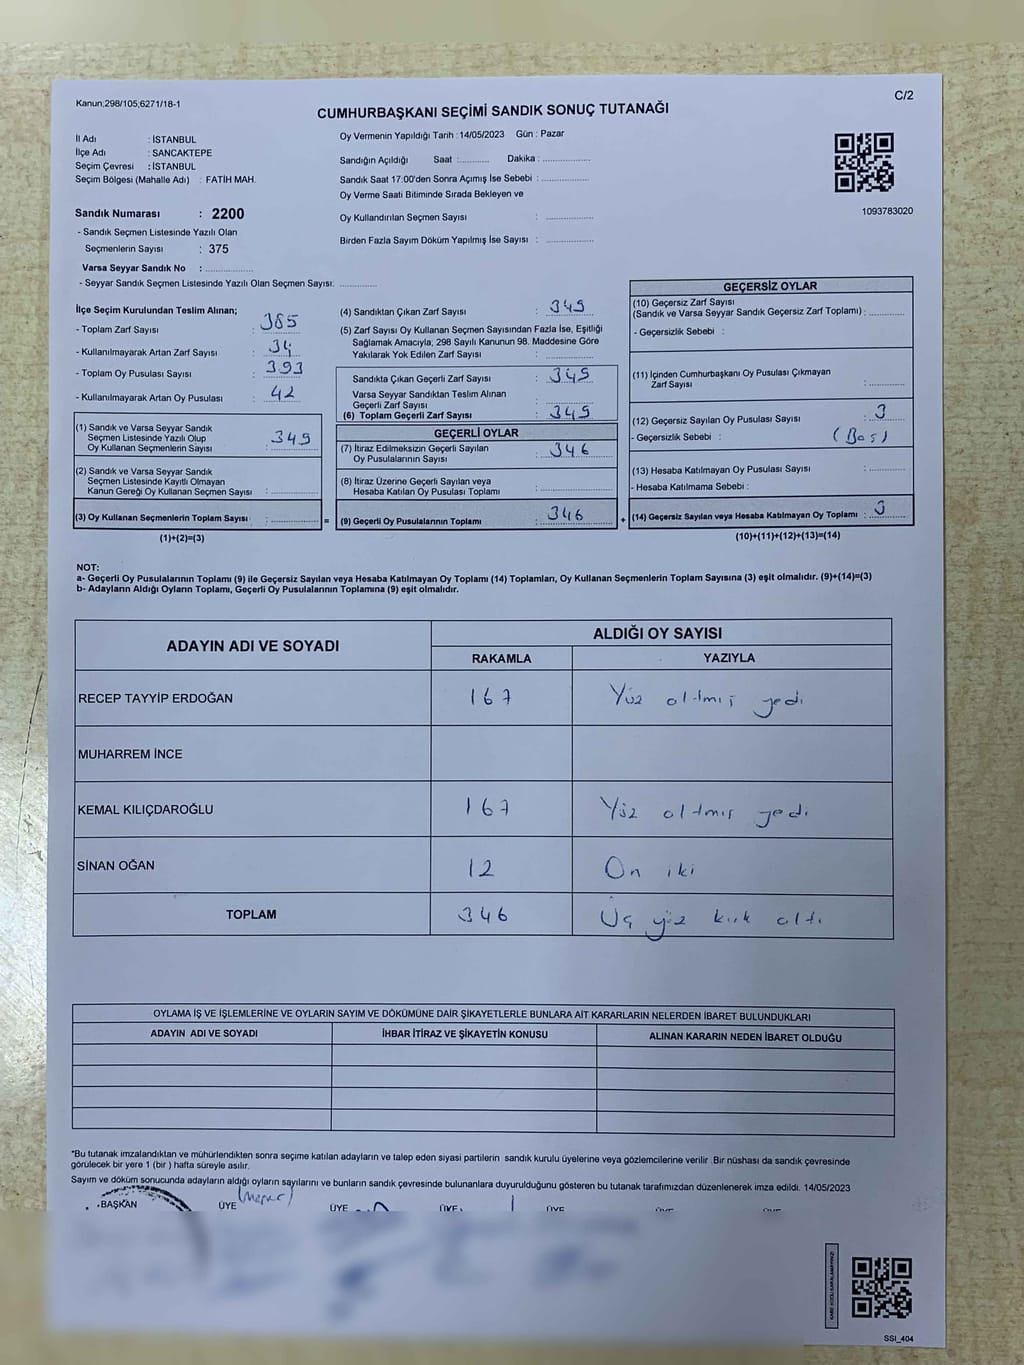 Kanun;298/105;6271/18-1
C/2
CUMHURBAŞKANI SEÇİMİ SANDIK SONUÇ TUTANAĞI
İl Adı : İSTANBUL
İlçe Adı : SANCAKTEPE
Seçim Çevresi : İSTANBUL
Seçim Bölgesi (Mahalle Adı) : FATİH MAH.
Sandık Numarası : 2200
- Sandık Seçmen Listesinde Yazılı Olan
Seçmenlerin Sayısı : 375
Varsa Seyyar Sandık No : ................
- Seyyar Sandık Seçmen Listesinde Yazılı Olan Seçmen Sayısı: ............
Oy Vermenin Yapıldığı Tarih : 14/05/2023 Gün : Pazar
Sandığın Açıldığı Saat :........... Dakika : ................
Sandık Saat 17:00'den Sonra Açımış İse Sebebi : ................
Oy Verme Saati Bitiminde Sırada Bekleyen ve
Oy Kullandırılan Seçmen Sayısı : ................
Birden Fazla Sayım Döküm Yapılmış İse Sayısı : ................
1093783020
İlçe Seçim Kurulundan Teslim Alınan;
- Toplam Zarf Sayısı : 385
- Kullanılmayarak Artan Zarf Sayısı : 34
- Toplam Oy Pusulası Sayısı : 393
- Kullanılmayarak Artan Oy Pusulası : 42
(1) Sandık ve Varsa Seyyar Sandık
Seçmen Listesinde Yazılı Olup
Oy Kullanan Seçmenlerin Sayısı : 349
(2) Sandık ve Varsa Seyyar Sandık
Seçmen Listesinde Kayıtlı Olmayan
Kanun Gereği Oy Kullanan Seçmen Sayısı : ................
(3) Oy Kullanan Seçmenlerin Toplam Sayısı : ................ =
(1)+(2)=(3)
(4) Sandıktan Çıkan Zarf Sayısı : 349
(5) Zarf Sayısı Oy Kullanan Seçmen Sayısından Fazla İse, Eşitliği
Sağlamak Amacıyla; 298 Sayılı Kanunun 98. Maddesine Göre
Yakılarak Yok Edilen Zarf Sayısı : ................
Sandıkta Çıkan Geçerli Zarf Sayısı : 349
Varsa Seyyar Sandıktan Teslim Alınan
Geçerli Zarf Sayısı : ................
(6) Toplam Geçerli Zarf Sayısı : 349
GEÇERLİ OYLAR
(7) İtiraz Edilmeksizin Geçerli Sayılan
Oy Pusulalarının Sayısı : 346
(8) İtiraz Üzerine Geçerli Sayılan veya
Hesaba Katılan Oy Pusulası Toplamı : ................
(9) Geçerli Oy Pusulalarının Toplamı : 346 +
GEÇERSİZ OYLAR
(10) Geçersiz Zarf Sayısı
(Sandık ve Varsa Seyyar Sandık Geçersiz Zarf Toplamı) : ............
- Geçersizlik Sebebi :
(11) İçinden Cumhurbaşkanı Oy Pusulası Çıkmayan
Zarf Sayısı : ............
(12) Geçersiz Sayılan Oy Pusulası Sayısı : 3
- Geçersizlik Sebebi : (Boş)
(13) Hesaba Katılmayan Oy Pusulası Sayısı : ............
- Hesaba Katılmama Sebebi :
(14) Geçersiz Sayılan veya Hesaba Katılmayan Oy Toplamı : 3
(10)+(11)+(12)+(13)=(14)
NOT:
a- Geçerli Oy Pusulalarının Toplamı (9) ile Geçersiz Sayılan veya Hesaba Katılmayan Oy Toplamı (14) Toplamları, Oy Kullanan Seçmenlerin Toplam Sayısına (3) eşit olmalıdır. (9)+(14)=(3)
b- Adayların Aldığı Oyların Toplamı, Geçerli Oy Pusulalarının Toplamına (9) eşit olmalıdır.
ADAYIN ADI VE SOYADI ALDIĞI OY SAYISI
RAKAMLA YAZIYLA
RECEP TAYYİP ERDOĞAN 167 Yüz altmış yedi
MUHARREM İNCE
KEMAL KILIÇDAROĞLU 167 Yüz altmış yedi
SİNAN OĞAN 12 On iki
TOPLAM 346 Üç yüz kırk altı
OYLAMA İŞ VE İŞLEMLERİNE VE OYLARIN SAYIM VE DÖKÜMÜNE DAİR ŞİKAYETLERLE BUNLARA AİT KARARLARIN NELERDEN İBARET BULUNDUKLARI
ADAYIN ADI VE SOYADI İHBAR İTİRAZ VE ŞİKAYETİN KONUSU ALINAN KARARIN NEDEN İBARET OLDUĞU
*Bu tutanak imzalandıktan ve mühürlendikten sonra seçime katılan adayların ve talep eden siyasi partilerin sandık kurulu üyelerine veya gözlemcilerine verilir .Bir nüshası da sandık çevresinde
görülecek bir yere 1 (bir ) hafta süreyle asılır.
Sayım ve döküm sonucunda adayların aldığı oyların sayılarını ve bunların sandık çevresinde bulunanlara duyurulduğunu gösteren bu tutanak tarafımızdan düzenlenerek imza edildi. 14/05/2023
BAŞKAN ÜYE ÜYE ÜYE ÜYE
SSI_404